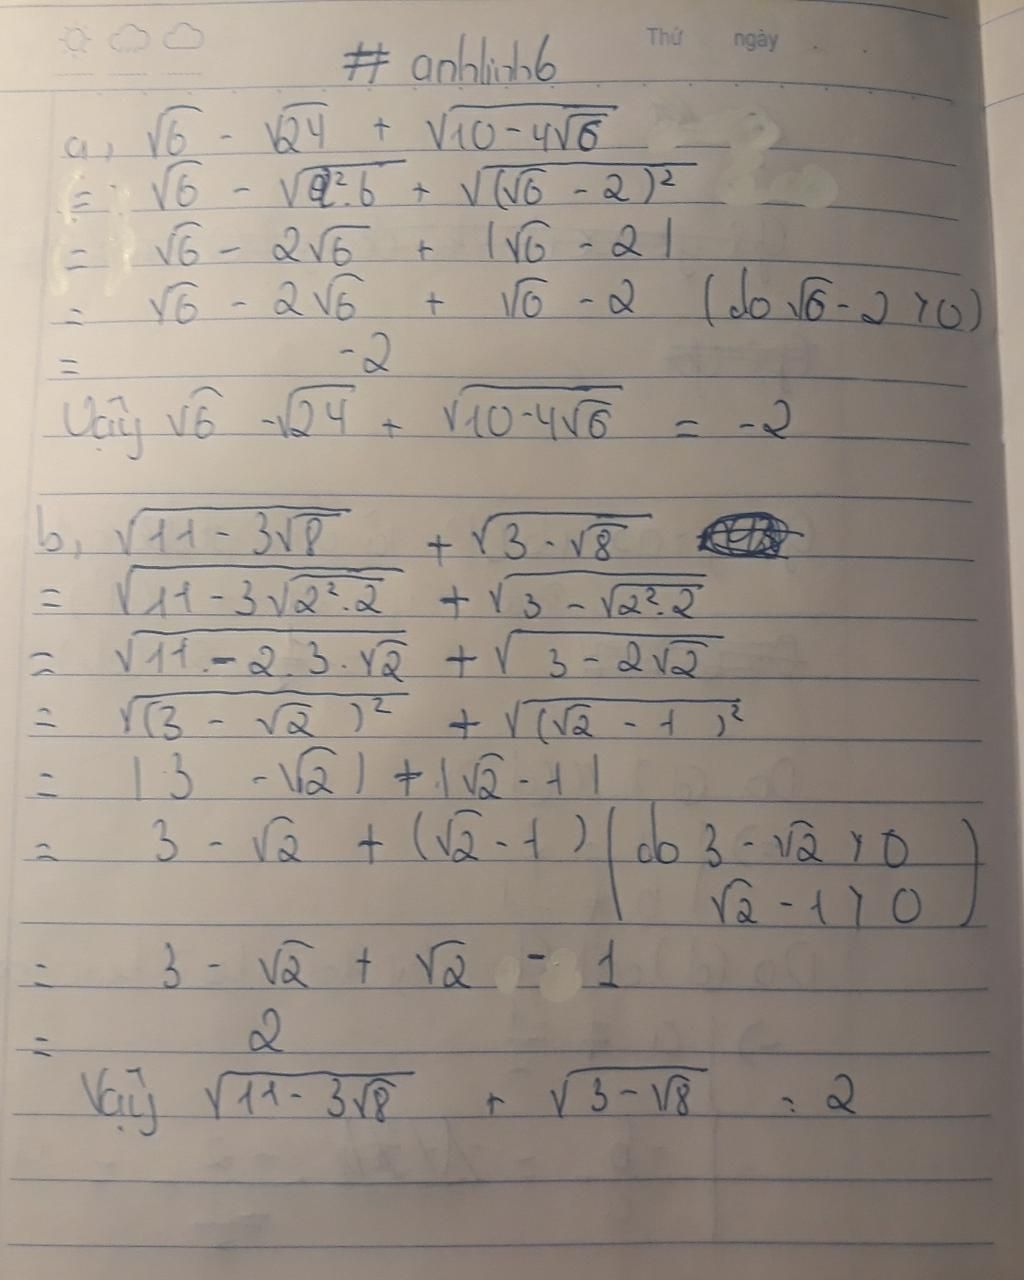 Thứ ngày . .
# anhlinh6
a, √6 - √24 + √(10-4√6)
= √6 - √(2².6) + √((√6 - 2)²)
= √6 - 2√6 + |√6 - 2|
= √6 - 2√6 + √6 - 2 (do √6 - 2 > 0)
= -2
Vậy √6 - √24 + √(10-4√6) = -2
b, √(11-3√8) + √(3-√8)
= √(11-3√(2².2)) + √(3-√(2².2))
= √(11-2.3.√2) + √(3-2√2)
= √((3 - √2)²) + √((√2 - 1)²)
= |3 - √2| + |√2 - 1|
= 3 - √2 + (√2 - 1) (do 3 - √2 > 0
√2 - 1 > 0)
= 3 - √2 + √2 - 1
= 2
Vậy √(11-3√8) + √(3-√8) = 2